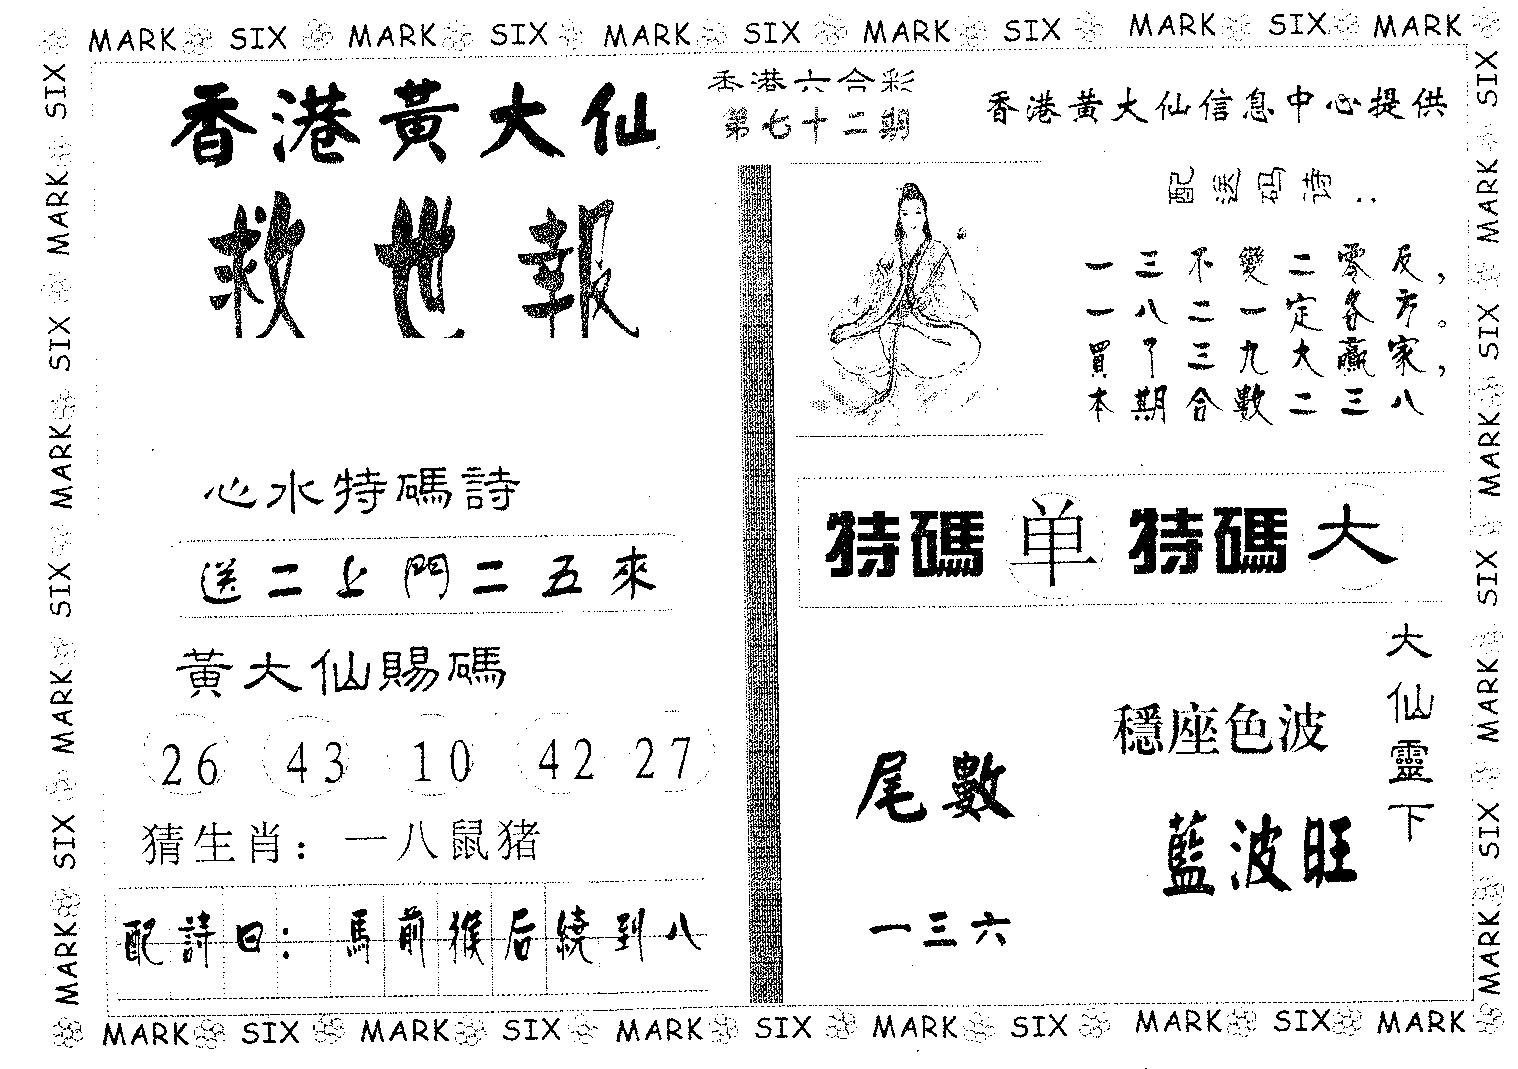 MARK SIX MARK SIX MARK SIX MARK SIX MARK SIX MARK
香港黃大仙
救世報
香港六合彩
第七十二期
香港黃大仙信息中心提供
配送码诗..
一三不變二零反，
一八二一定各方。
買了三九大贏家，
本期合數二三八
心水特碼詩
送二上門二五來
黃大仙賜碼
26 43 10 42 27
猜生肖：一八鼠猪
配詩曰：馬前猴后繞到八
特碼单特碼大
大仙靈下
穩座色波
藍波旺
尾數
一三六
SIX MARK SIX MARK SIX MARK SIX MARK
SIX MARK SIX MARK SIX MARK SIX MARK
MARK SIX MARK SIX MARK SIX MARK SIX MARK SIX MARK